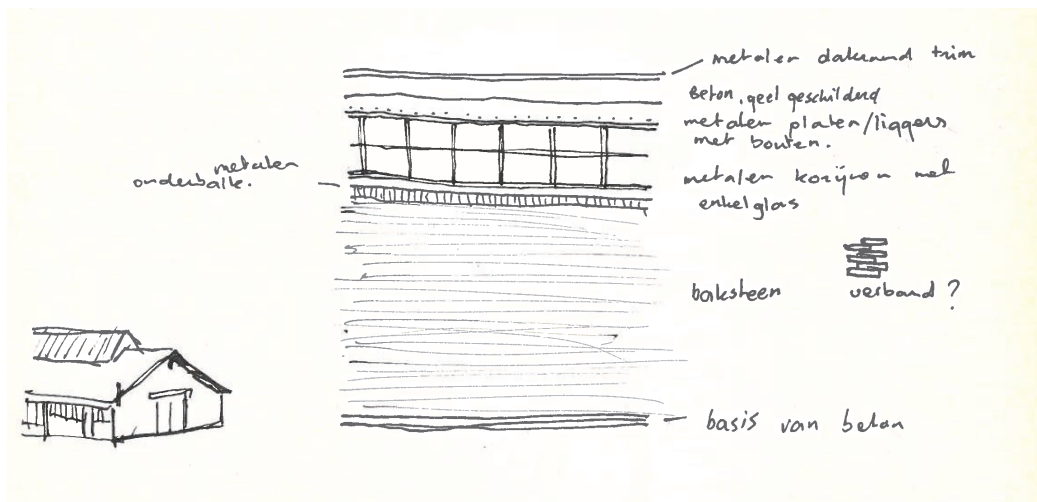 metalen dakrand trim
Beton, geel geschilderd
metalen platen/liggers
met bouten.
metalen
onderbalk.
metalen kozijnen met
enkelglas
baksteen verband?
basis van beton